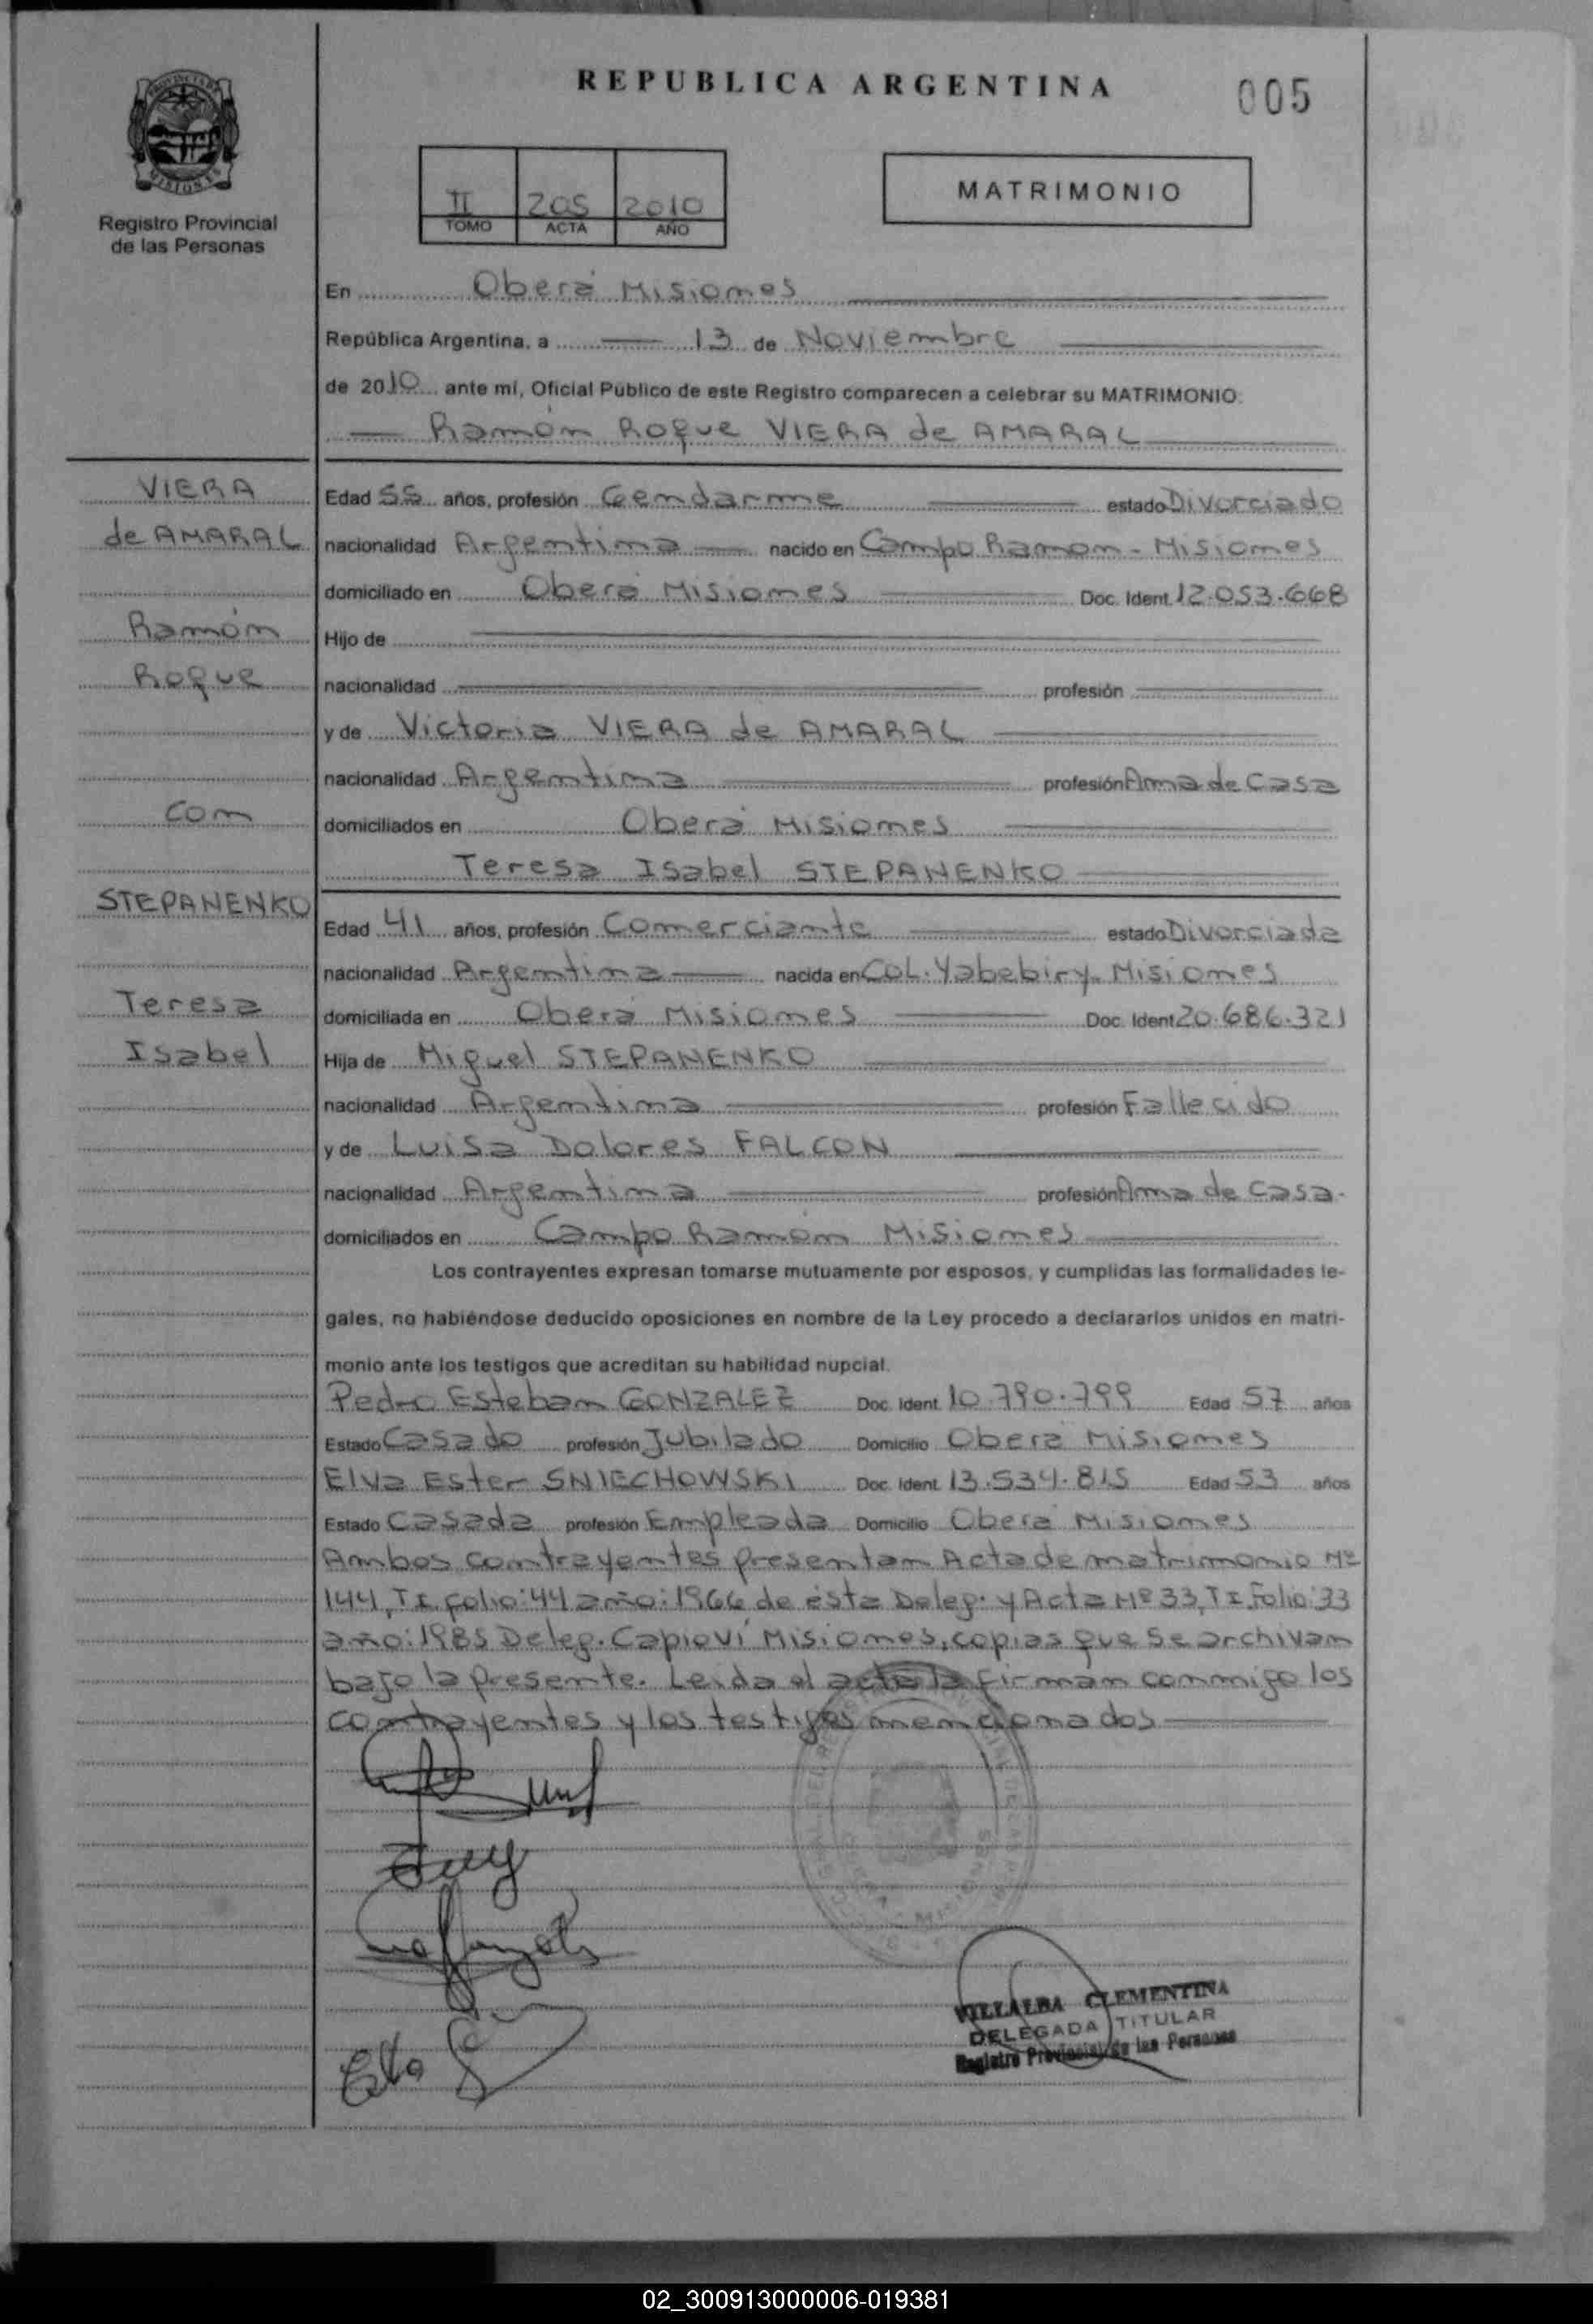 REPUBLICA ARGENTINA
005
PROVINCIA DE MISIONES
Registro Provincial
de las Personas
II 205 2010
TOMO ACTA AÑO
MATRIMONIO
En Oberá Misiones
República Argentina, a 13 de Noviembre
de 2010 ante mí, Oficial Público de este Registro comparecen a celebrar su MATRIMONIO:
Ramón Roque VIERA de AMARAL
VIERA
de AMARAL
Ramón
Roque
con
STEPANENKO
Teresa
Isabel
Edad 55 años, profesión Gendarme estado Divorciado
nacionalidad Argentina nacido en Campo Ramon - Misiones
domiciliado en Oberá Misiones Doc. Ident. 12.053.668
Hijo de
nacionalidad profesión
y de Victoria VIERA de AMARAL
nacionalidad Argentina profesión Ama de Casa
domiciliados en Oberá Misiones
Teresa Isabel STEPANENKO
Edad 41 años, profesión Comerciante estado Divorciada
nacionalidad Argentina nacida en COL. Yabebiry - Misiones
domiciliada en Oberá Misiones Doc. Ident. 20.686.321
Hija de Miguel STEPANENKO
nacionalidad Argentina profesión Fallecido
y de Luisa Dolores FALCON
nacionalidad Argentina profesión Ama de Casa.
domiciliados en Campo Ramón Misiones
Los contrayentes expresan tomarse mutuamente por esposos, y cumplidas las formalidades le-
gales, no habiéndose deducido oposiciones en nombre de la Ley procedo a declararlos unidos en matri-
monio ante los testigos que acreditan su habilidad nupcial.
Pedro Esteban GONZALEZ Doc. Ident. 10.790.799 Edad 57 años
Estado Casado profesión Jubilado Domicilio Oberá Misiones
Elva Ester SNIECHOWSKI Doc. Ident. 13.534.815 Edad 53 años
Estado Casada profesión Empleada Domicilio Oberá Misiones
Ambos contrayentes presentan Acta de matrimonio Nº
144, T I. folio: 44 año: 1966 de ésta Deleg. y Acta Nº 33, T I. Folio: 33
año: 1985 Deleg. Capiovi Misiones, copias que se archivan
bajo la presente. Leida el acta la firman conmigo los
contrayentes y los testigos mencionados
VILLALBA CLEMENTINA
DELEGADA TITULAR
Registro Provincial de las Personas
02_300913000006-019381